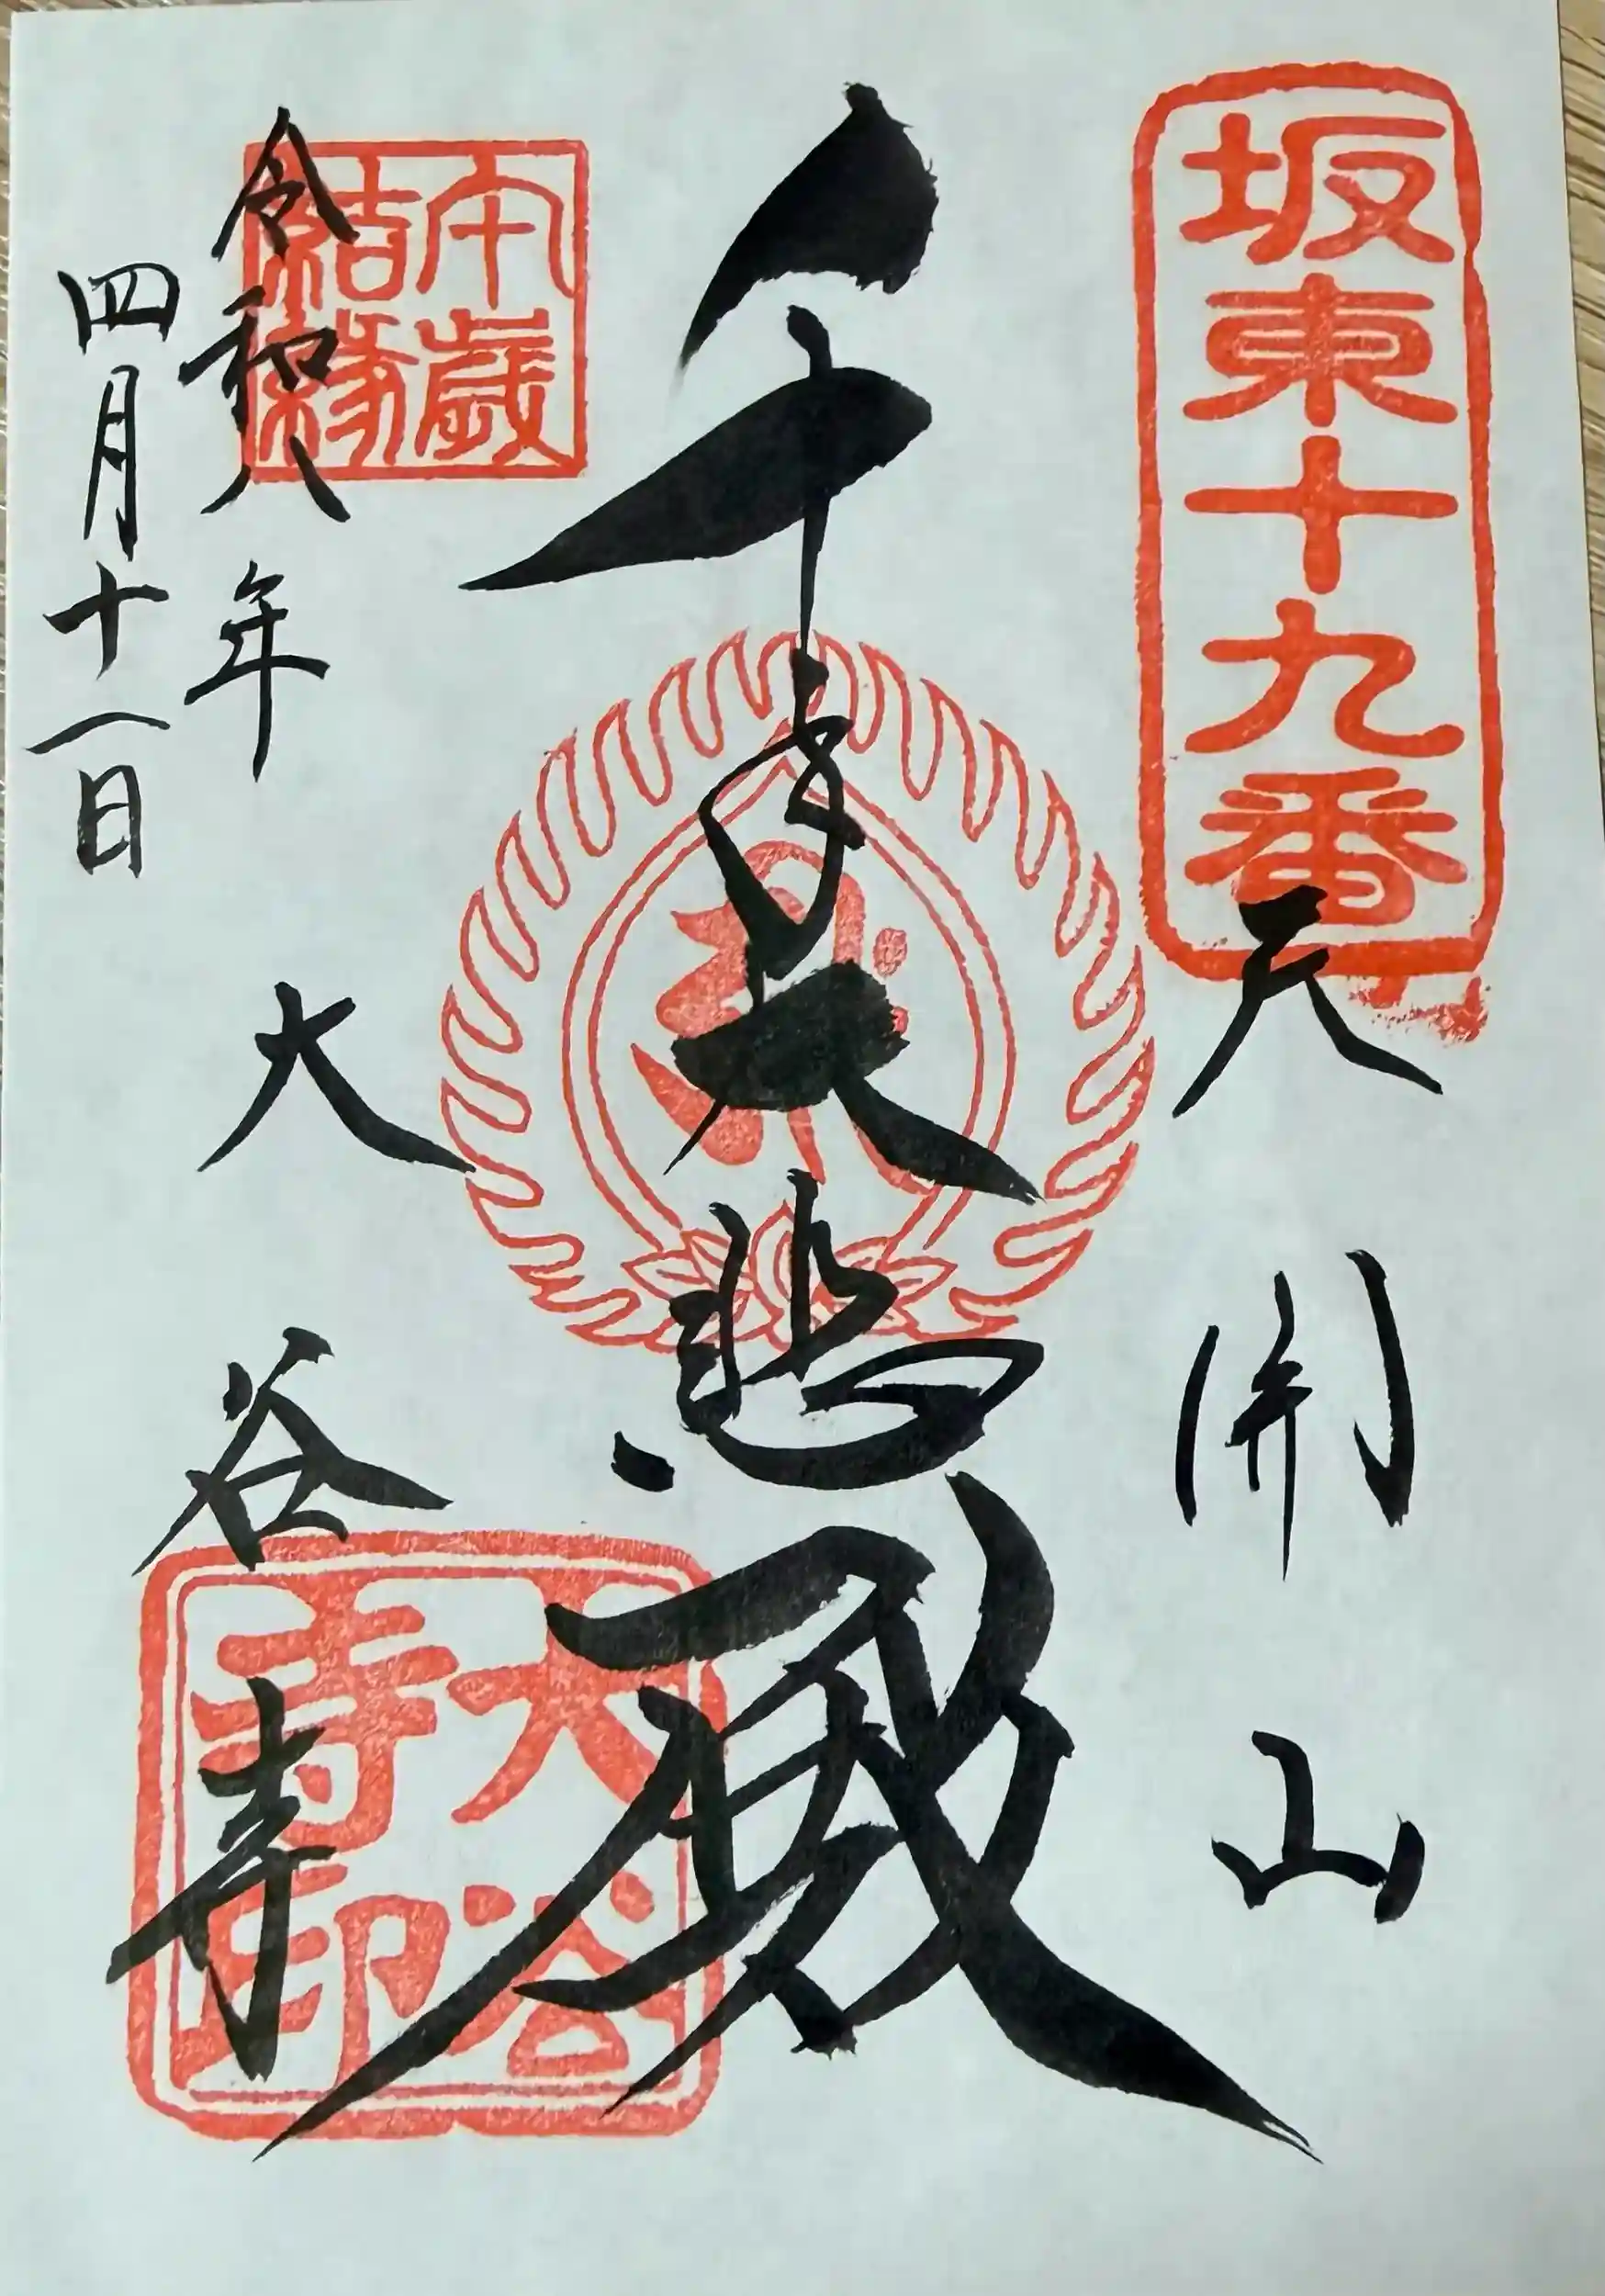 坂東十九番
天開山
千手大悲殿
午歳結縁
令和八年
四月十一日
大谷寺
大谷寺印